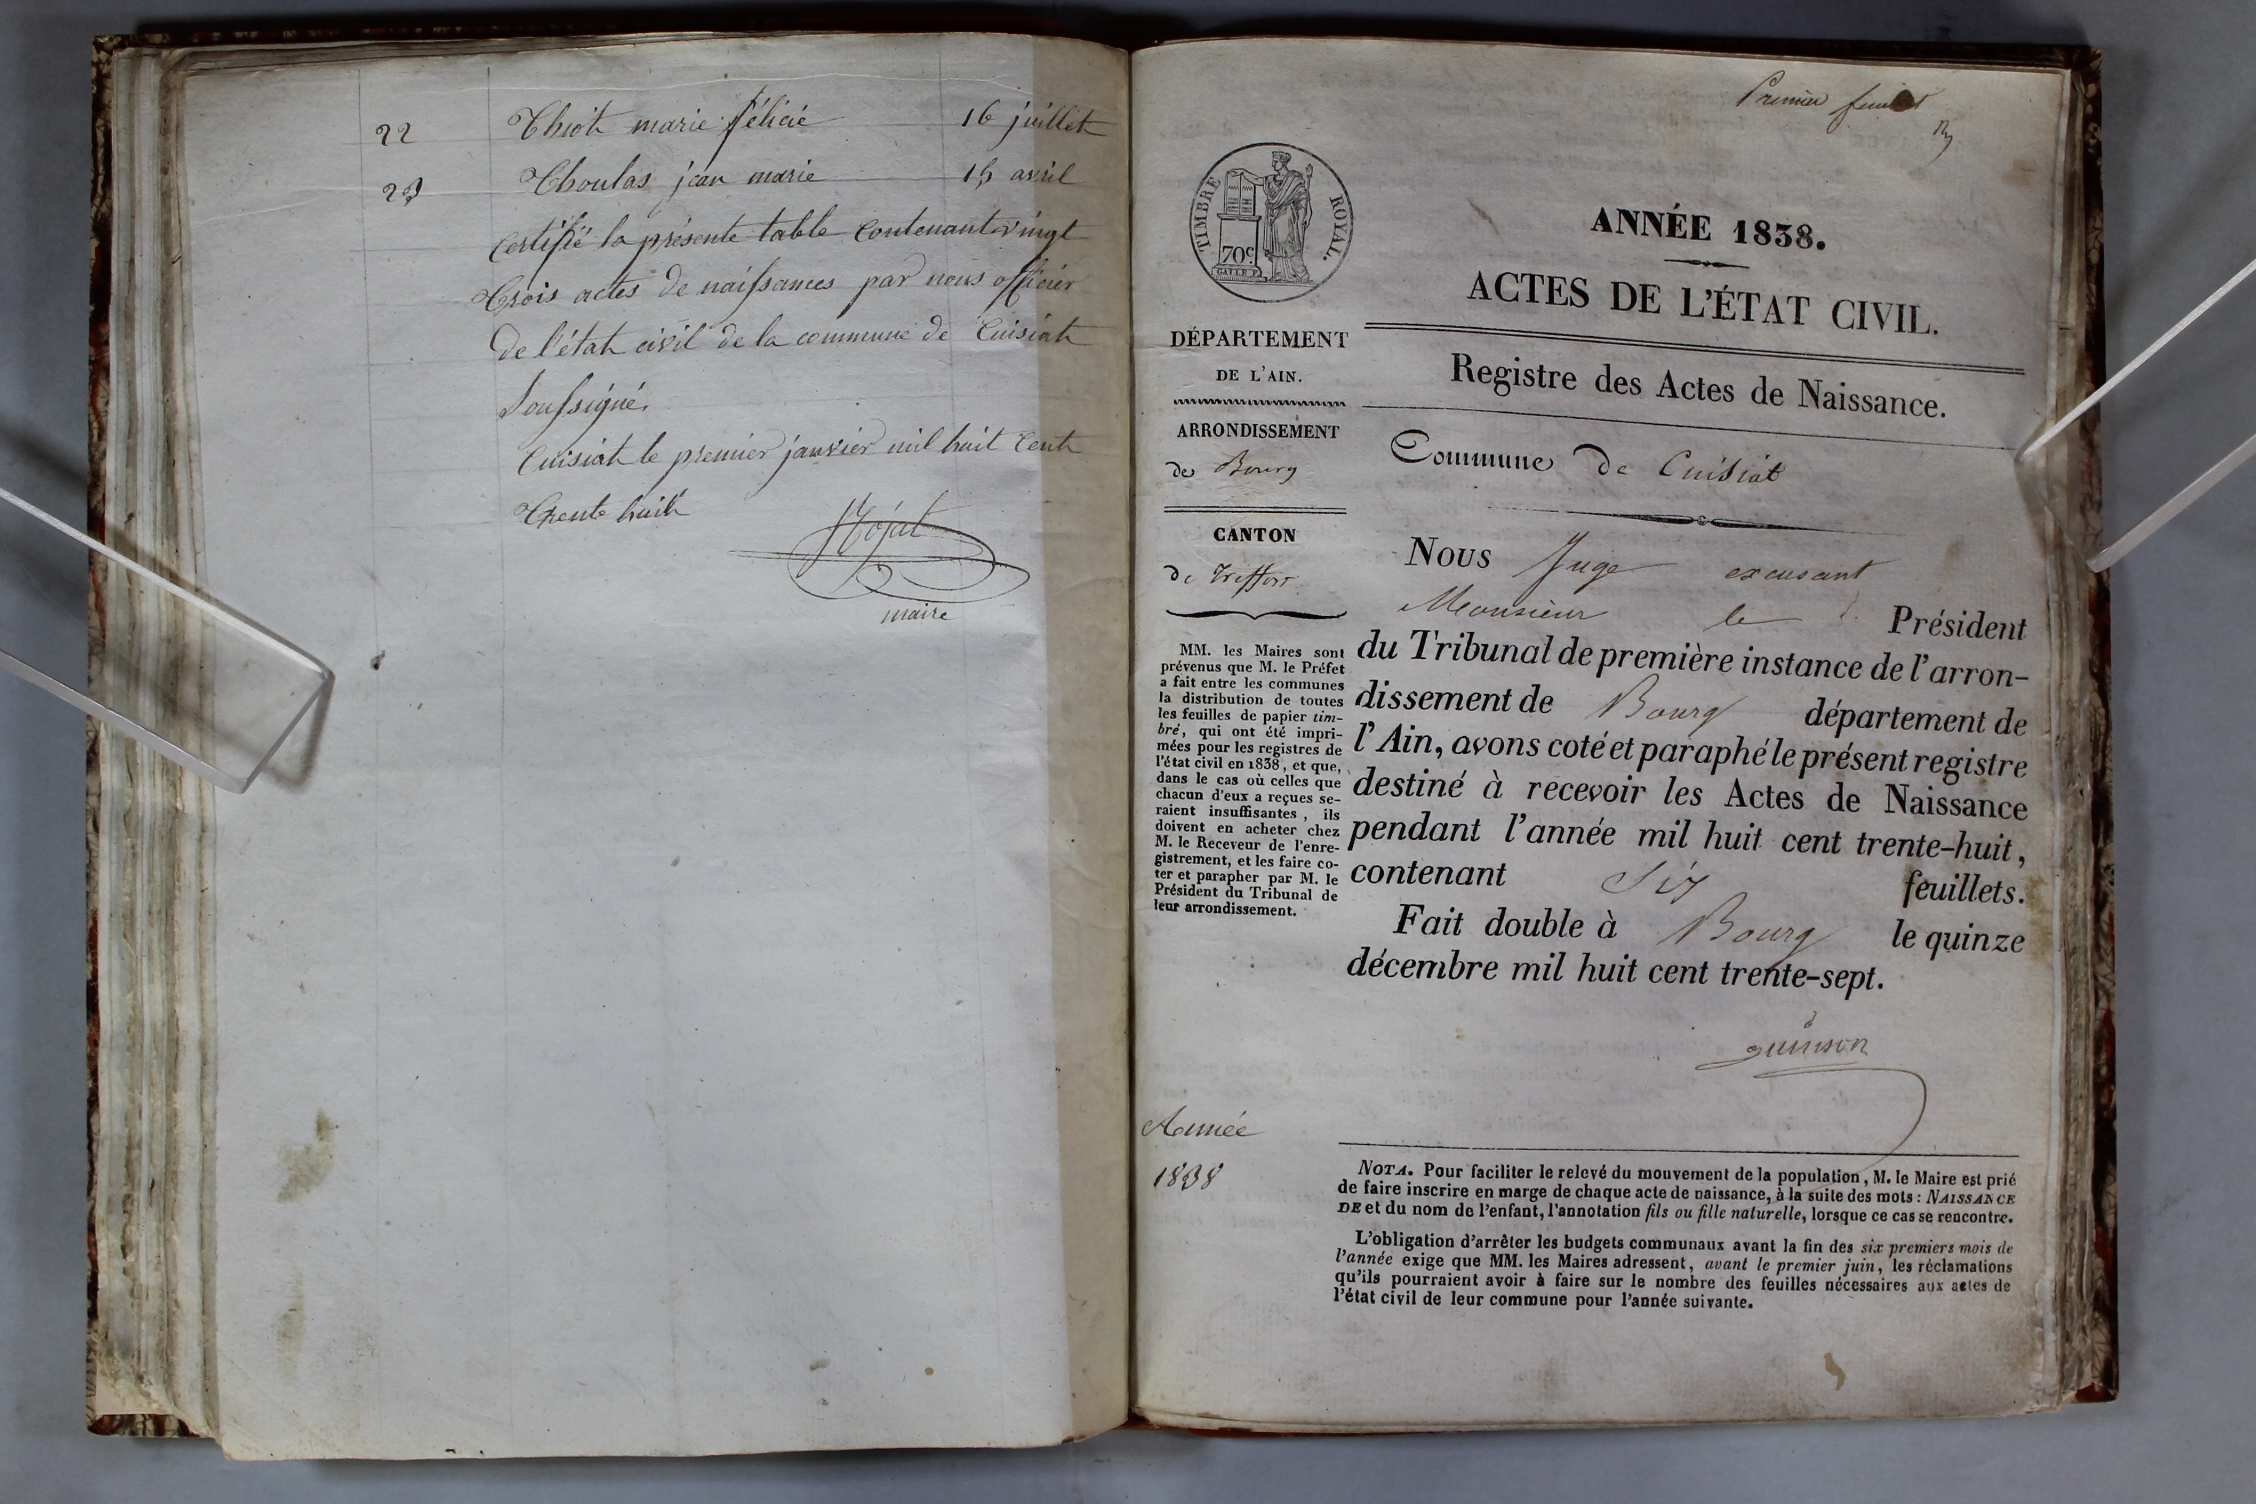 22 Thiot marie félicie 16 juillet
23 Choulas jean marie 15 avril
Certifié la présente table Contenant vingt
Trois actes de naissances par nous officier
de l'état civil de la commune de Cuisiat
Soussigné.
Cuisiat le premier janvier mil huit Cent
Trente huit
maire
Premier feuillet
TIMBRE ROYAL.
70c
ANNÉE 1838.
ACTES DE L'ÉTAT CIVIL.
Registre des Actes de Naissance.
Commune de Cuisiat
DÉPARTEMENT
DE L'AIN.
ARRONDISSEMENT
de Bourg
CANTON
de Treffort
MM. les Maires sont
prévenus que M. le Préfet
a fait entre les communes
la distribution de toutes
les feuilles de papier tim-
bré, qui ont été impri-
mées pour les registres de
l'état civil en 1838, et que,
dans le cas où celles que
chacun d'eux a reçues se-
raient insuffisantes, ils
doivent en acheter chez
M. le Receveur de l'enre-
gistrement, et les faire co-
ter et parapher par M. le
Président du Tribunal de
leur arrondissement.
Nous Juge excusant
Monsieur le Président
du Tribunal de première instance de l'arron-
dissement de Bourg département de
l'Ain, avons coté et paraphé le présent registre
destiné à recevoir les Actes de Naissance
pendant l'année mil huit cent trente-huit,
contenant Six feuillets.
Fait double à Bourg le quinze
décembre mil huit cent trente-sept.
guinson
Année
1838
NOTA. Pour faciliter le relevé du mouvement de la population, M. le Maire est prié
de faire inscrire en marge de chaque acte de naissance, à la suite des mots : NAISSANCE
DE et du nom de l'enfant, l'annotation fils ou fille naturelle, lorsque ce cas se rencontre.
L'obligation d'arrêter les budgets communaux avant la fin des six premiers mois de
l'année exige que MM. les Maires adressent, avant le premier juin, les réclamations
qu'ils pourraient avoir à faire sur le nombre des feuilles nécessaires aux actes de
l'état civil de leur commune pour l'année suivante.